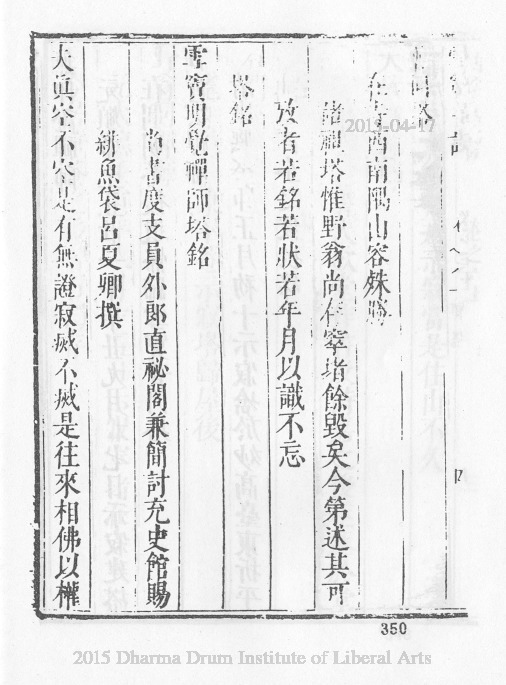 在寺西南隅山容殊勝
諸禪塔惟野翁尚存窣堵餘毀矣今第述其可
攷者若銘若狀若年月以識不忘
塔銘
雪竇明覺禪師塔銘
尚書度支員外郎直祕閣兼簡討充史館賜
緋魚袋呂夏卿撰
夫眞空不空是有無證寂滅不滅是往來相佛以權
350
2015-04-17
2015 Dharma Drum Institute of Liberal Arts